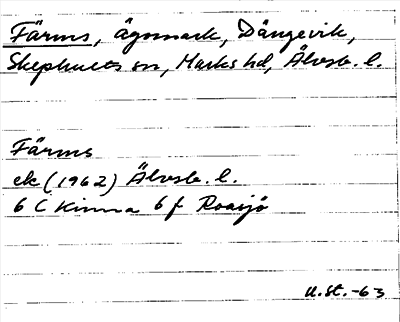 Färms, ägomark, Dångevik,
Skephults sn, Marks hd, Älvsb. l.
Färms
ek (1962) Älvsb. l.
6 C Kinna 6 f Roasjö
U.St.-63